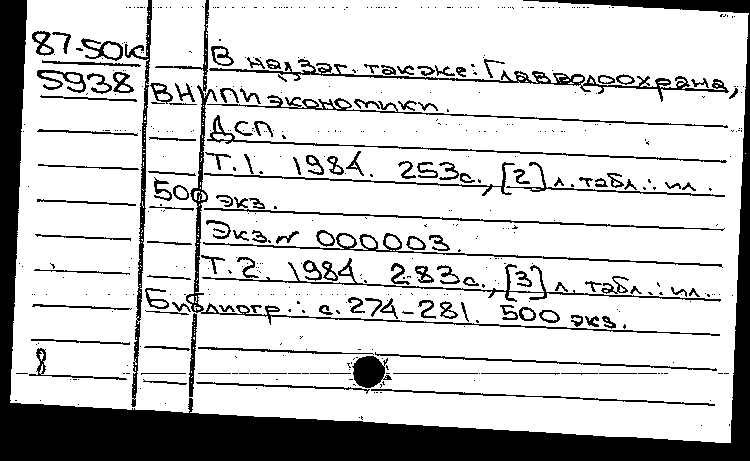 87-50к
5938
В надзаг. также: Главводоохрана,
ВНИПИэкономики.
ДСП.
Т.1. 1984. 253с., [2] л. табл.: ил.
500 экз.
Экз.№ 000003.
Т.2. 1984. 283с., [3] л. табл.: ил.
Библиогр.: с. 274-281. 500 экз.
8